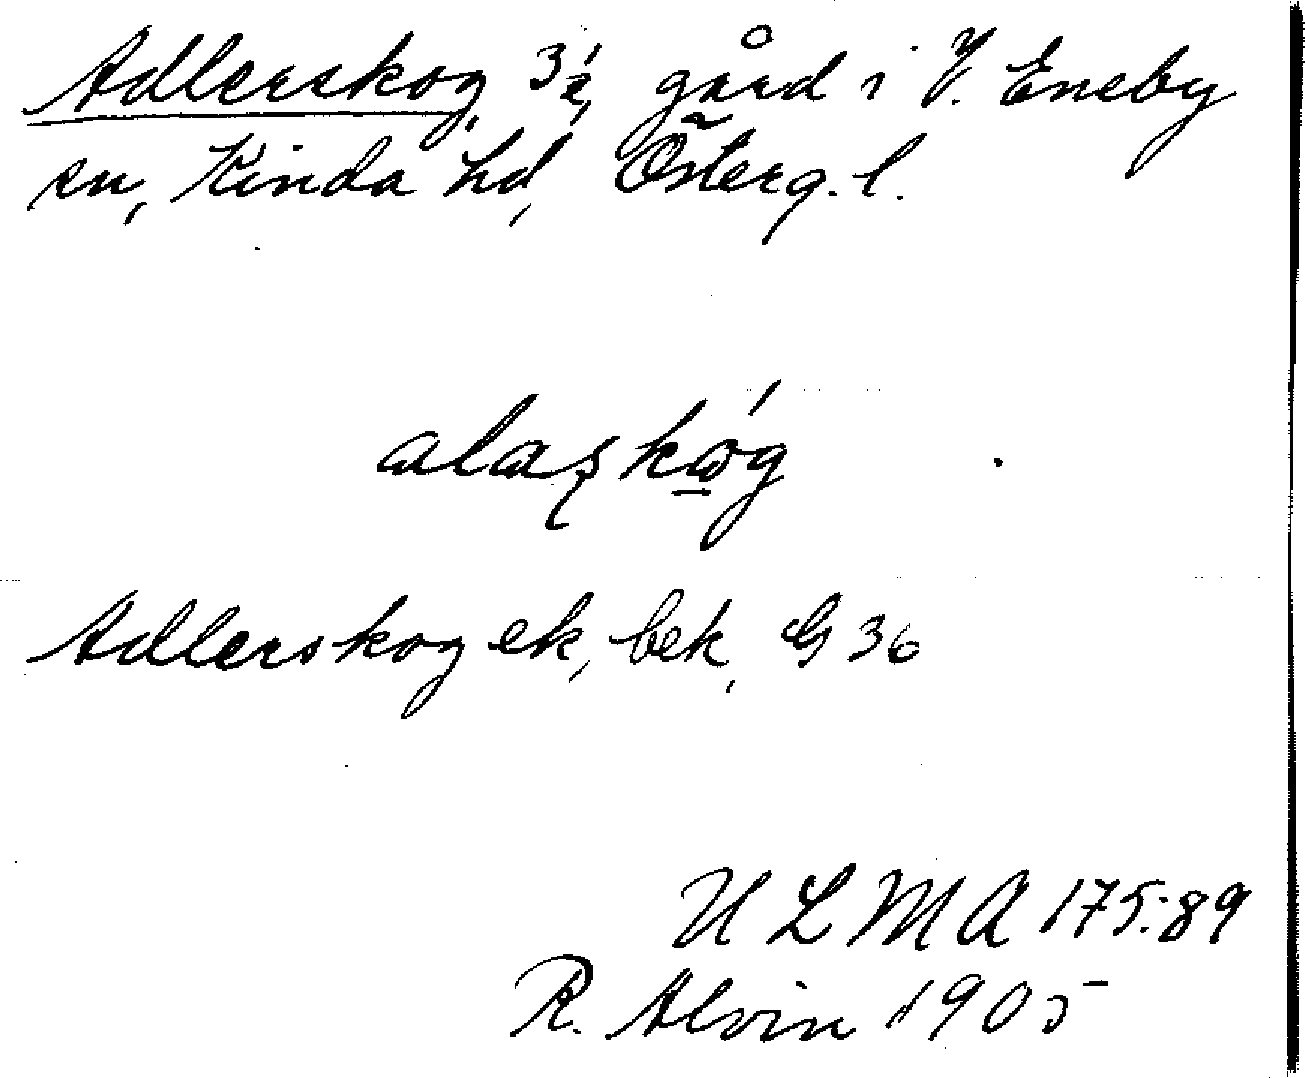 Adlerskog, 3/4, gård i V. Eneby
sn, Kinda hd, Österg. l.
alaʂkóg
Adlerskog ek, bek, G 36
ULMA 175:89
R. Alvin 1905